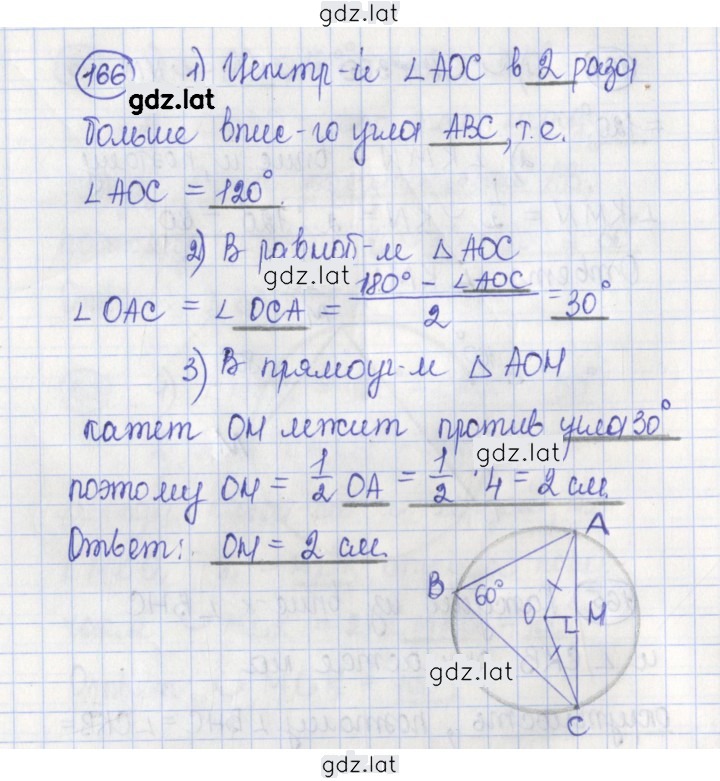 gdz.lat
166 1) Центр-й ∠AOC в 2 раза
gdz.lat
больше впис-го угла ABC, т.е.
∠AOC = 120°.
2) В равноб-м △AOC
gdz.lat
∠OAC = ∠OCA = (180° - ∠AOC)/2 = 30°
3) В прямоуг-м △AOM
катет OM лежит против угла 30°
gdz.lat
поэтому OM = 1/2 OA = 1/2 · 4 = 2 см.
Ответ: OM = 2 см.
A
B 60° O M
gdz.lat
C
gdz.lat